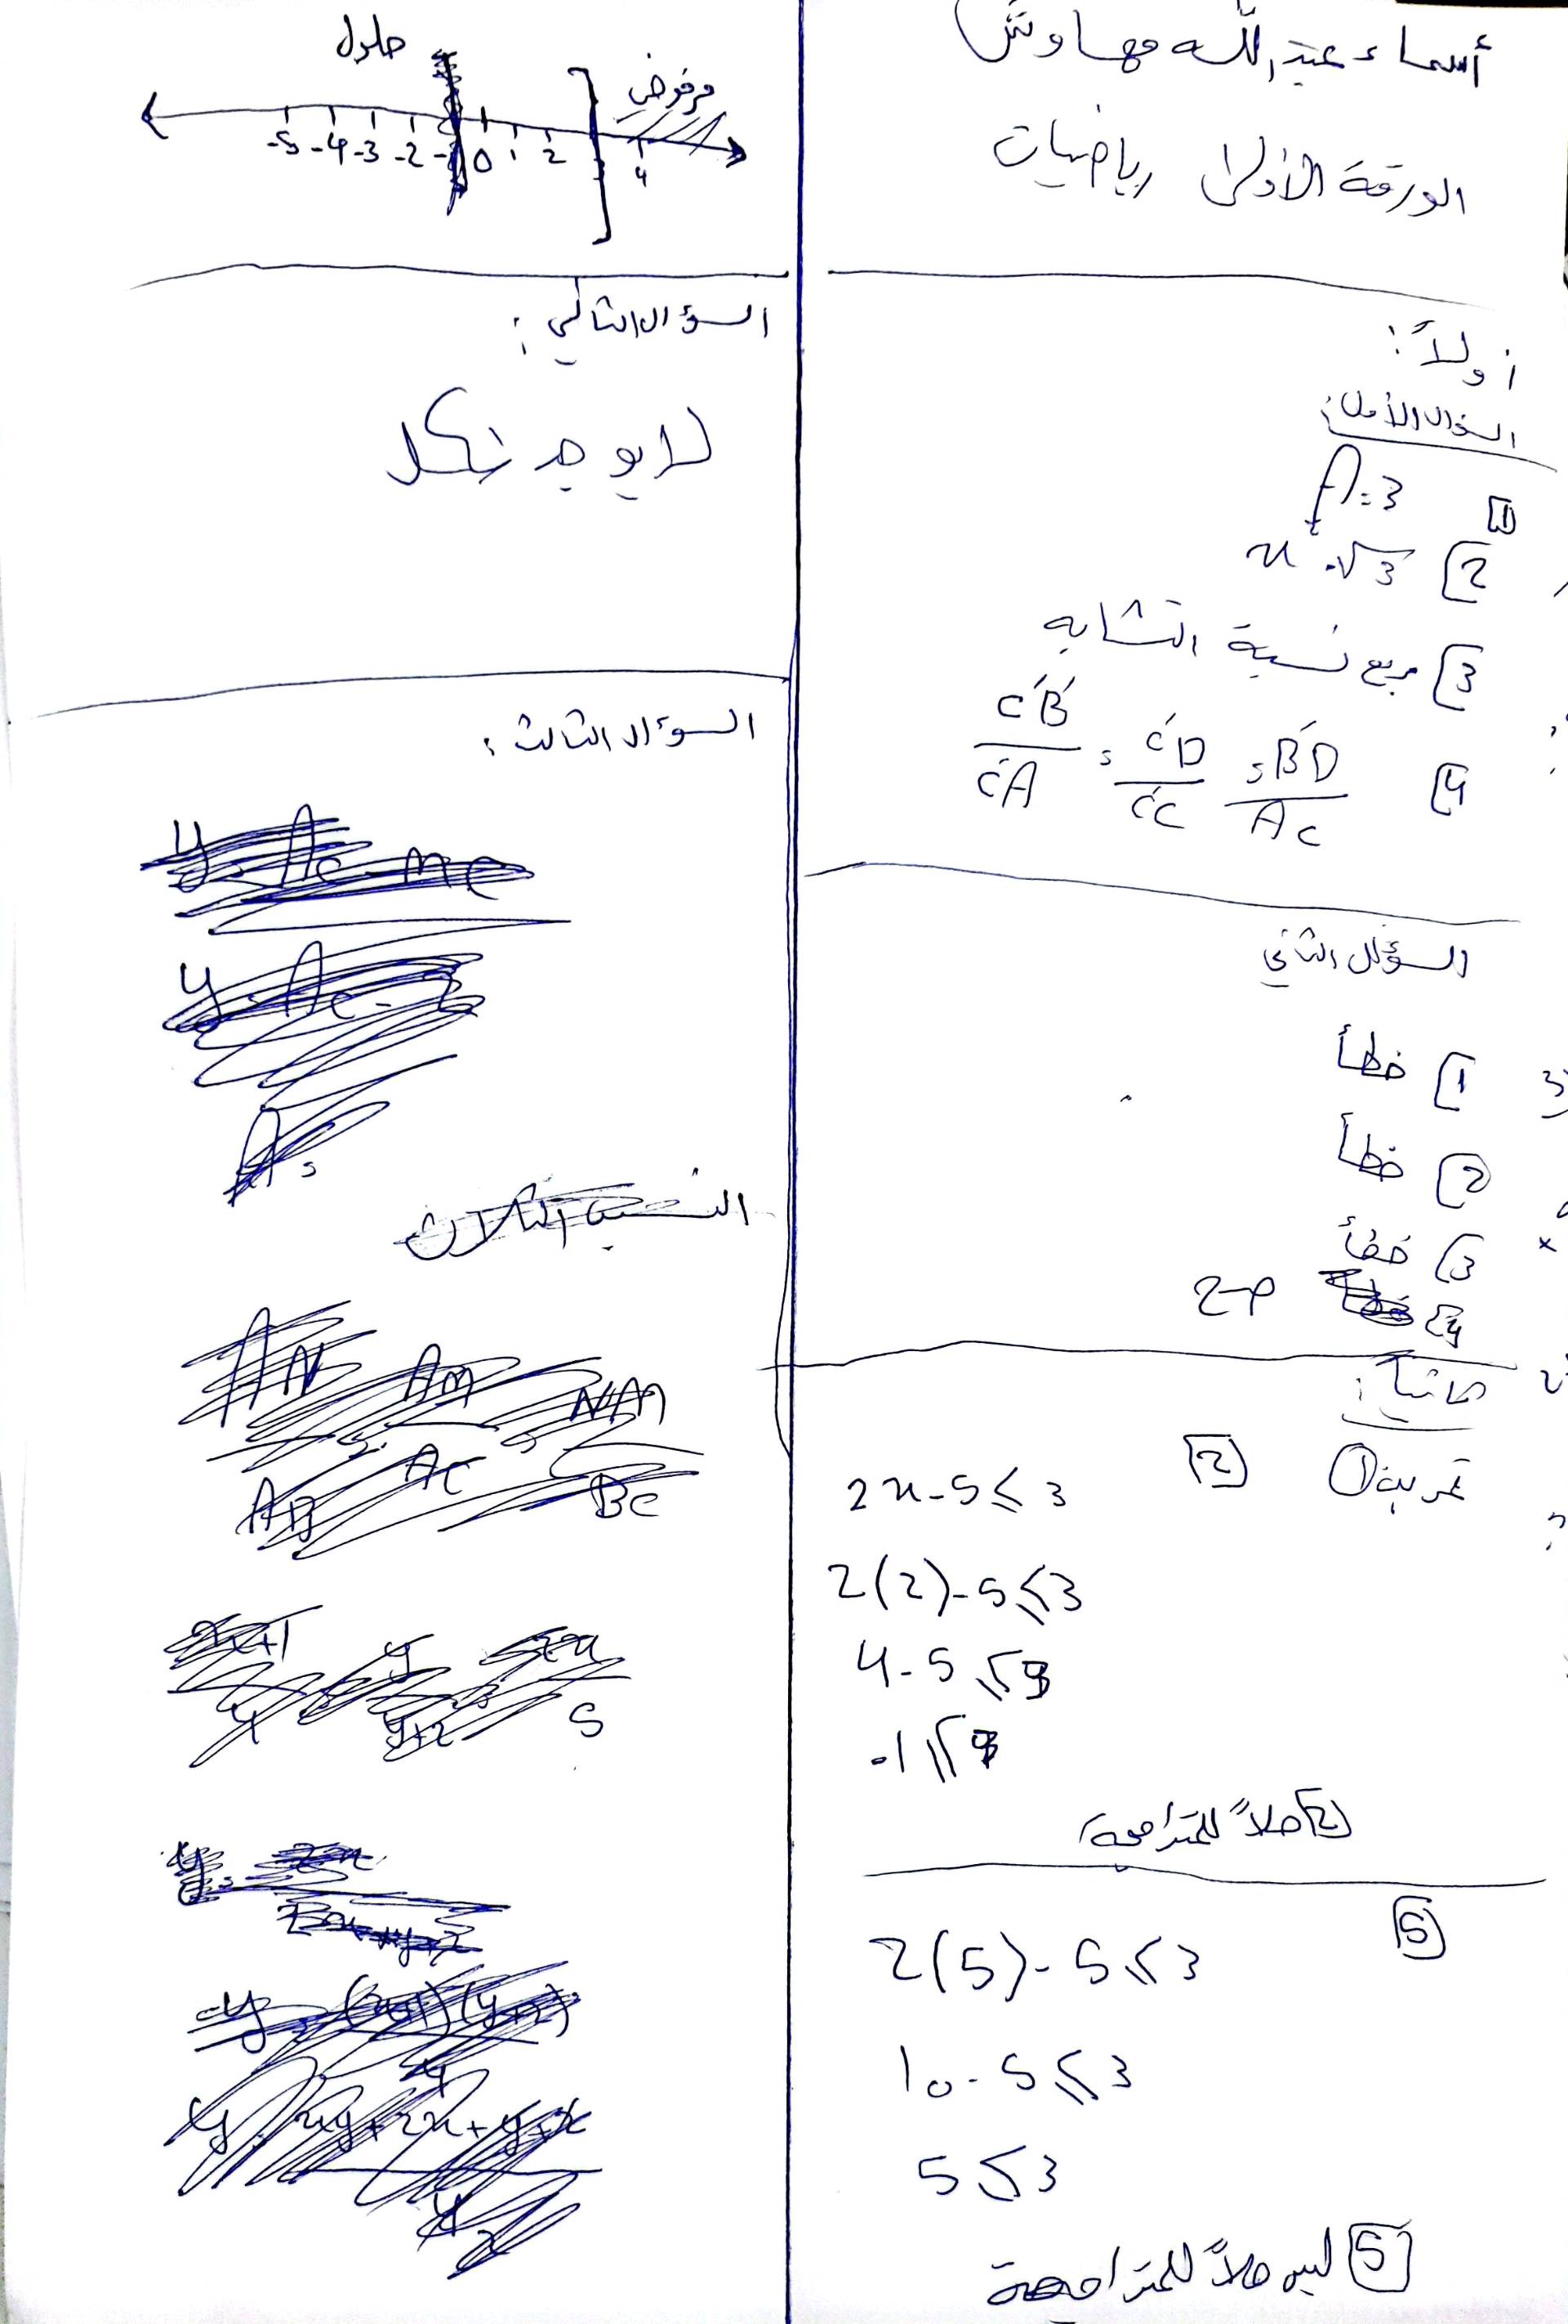 أسماء عبد الله مهاوش
الورقة الأولى رياضيات
أولاً:
السؤال الأول:
1] A=3
2] x = √3
3] مربع نسبة التشابه
4] C'B'/C'A = C'D/C'C = B'D/AC
السؤال الثاني
1] خطأ
2] خطأ
3] خطأ
4]
ثانياً:
تمرين ①
[2]
2x-5≤3
2(2)-5≤3
4-5≤3
-1≤3
[2] حلاً للمتراجحة
[5]
2(5)-5≤3
10-5≤3
5≤3
[5] ليس حلاً للمتراجحة
حلول
مرفوض
-5 -4 -3 -2 -1 0 1 2 4
السؤال الثاني:
لا يوجد شكل
السؤال الثالث:
النسب الثلاث
AN/AB = AM/AC = NM/BC